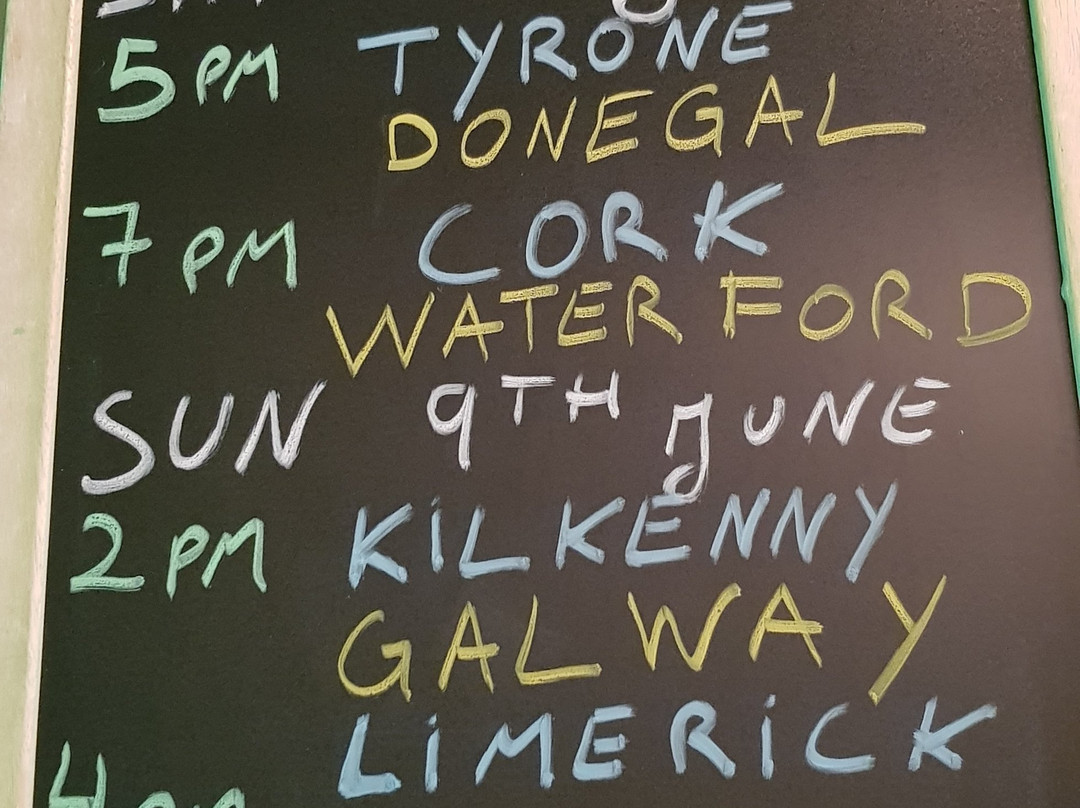 5PM TYRONE
DONEGAL
7PM CORK
WATERFORD
SUN 9TH JUNE
2PM KiLKENNY
GALWAY
LiMERiCK
4PM